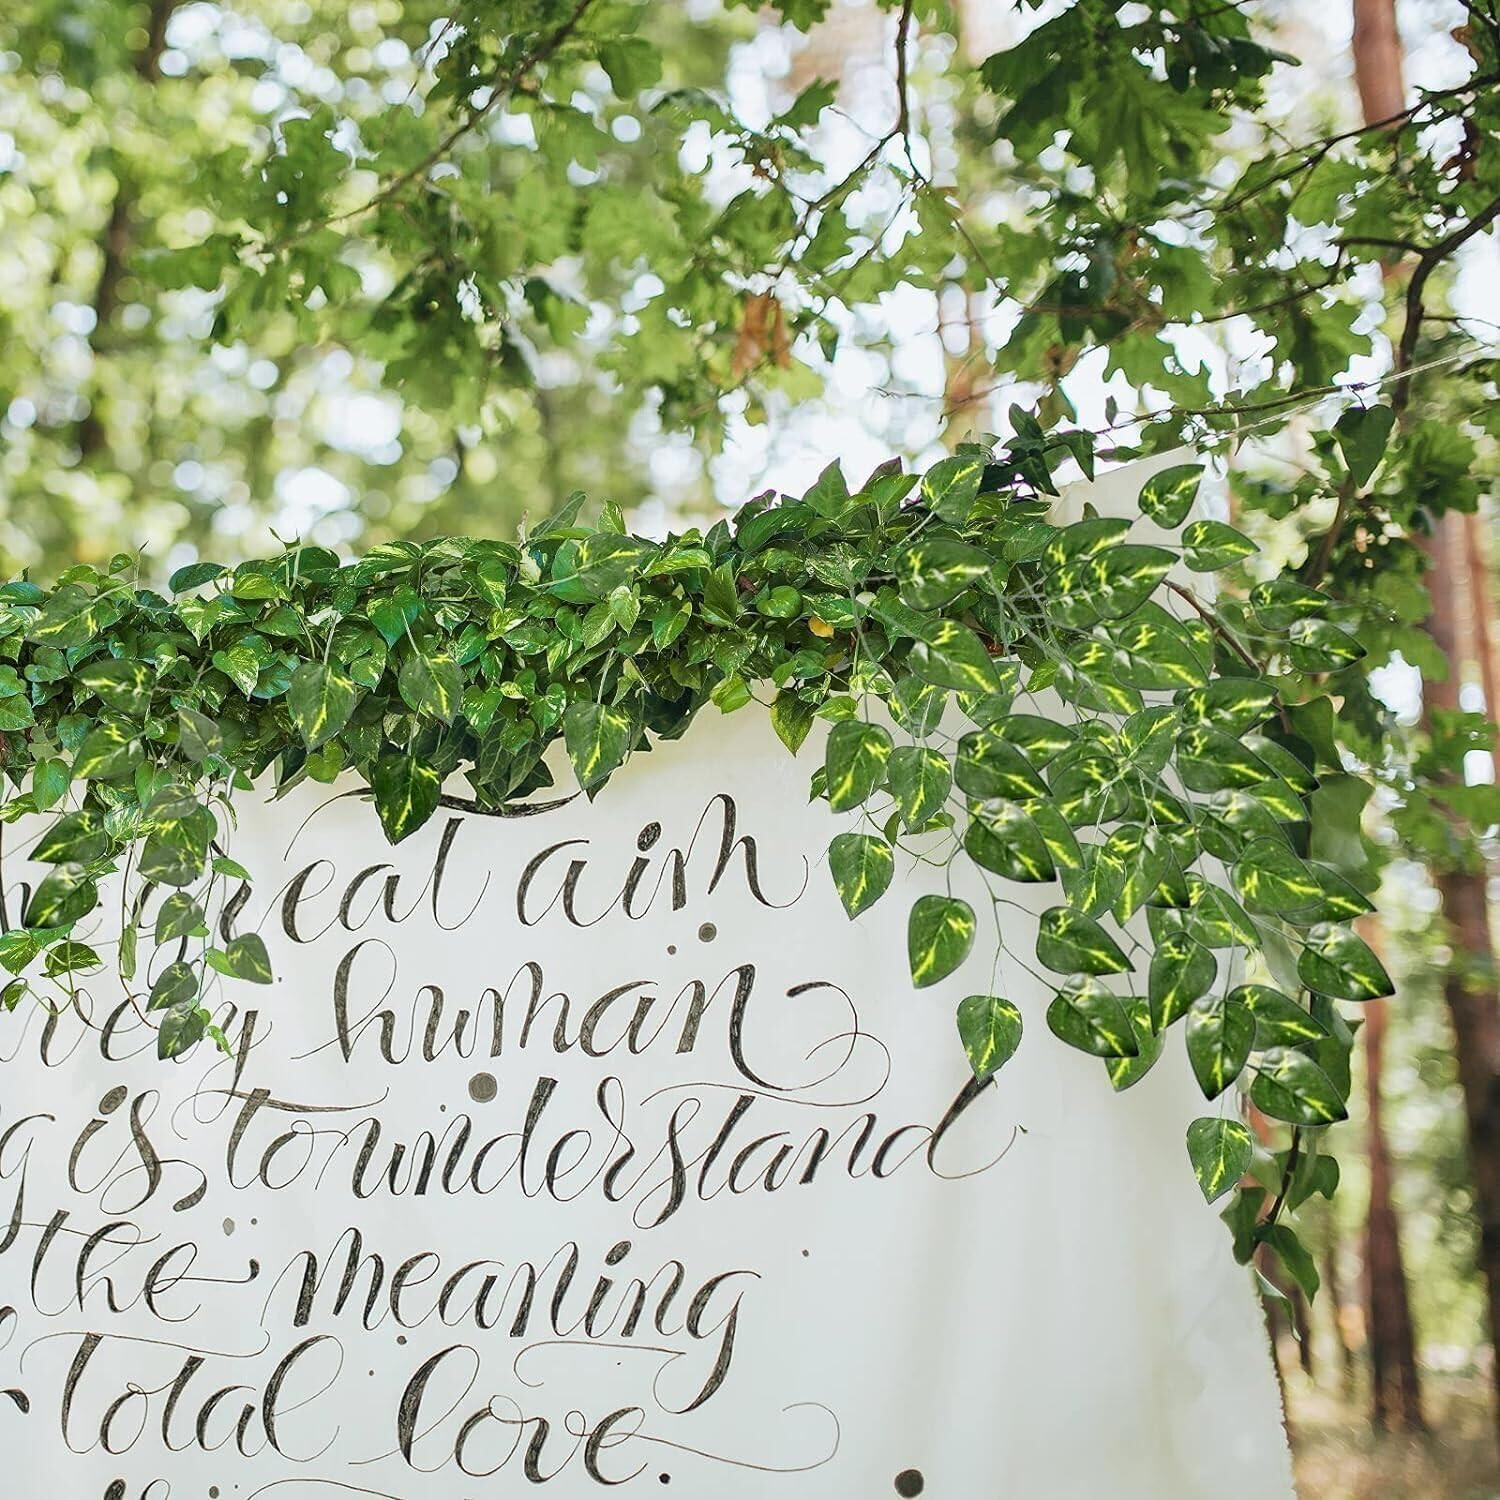 great aim
every human
is to understand
the meaning
total love.